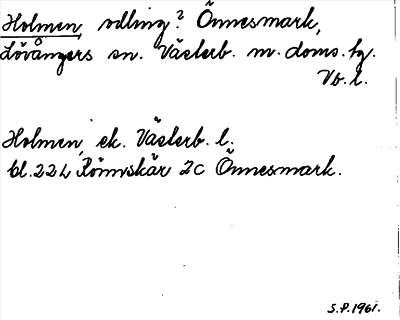 Holmen, odling? Önnesmark,
Lövångers sn. Västerb. m. doms. hg.
Vb. l.
Holmen, ek. Västerb. l.
bl. 22 L Rönnskär 2c Önnesmark.
S.P. 1961.